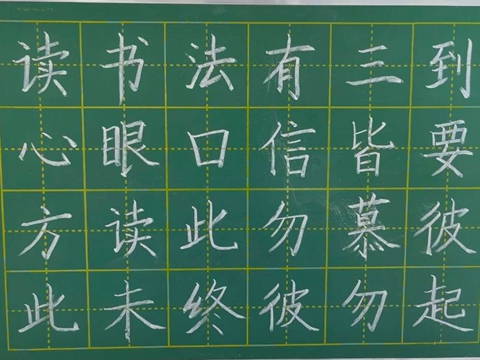 读书法有三到
心眼口信皆要
方读此勿慕彼
此未终彼勿起